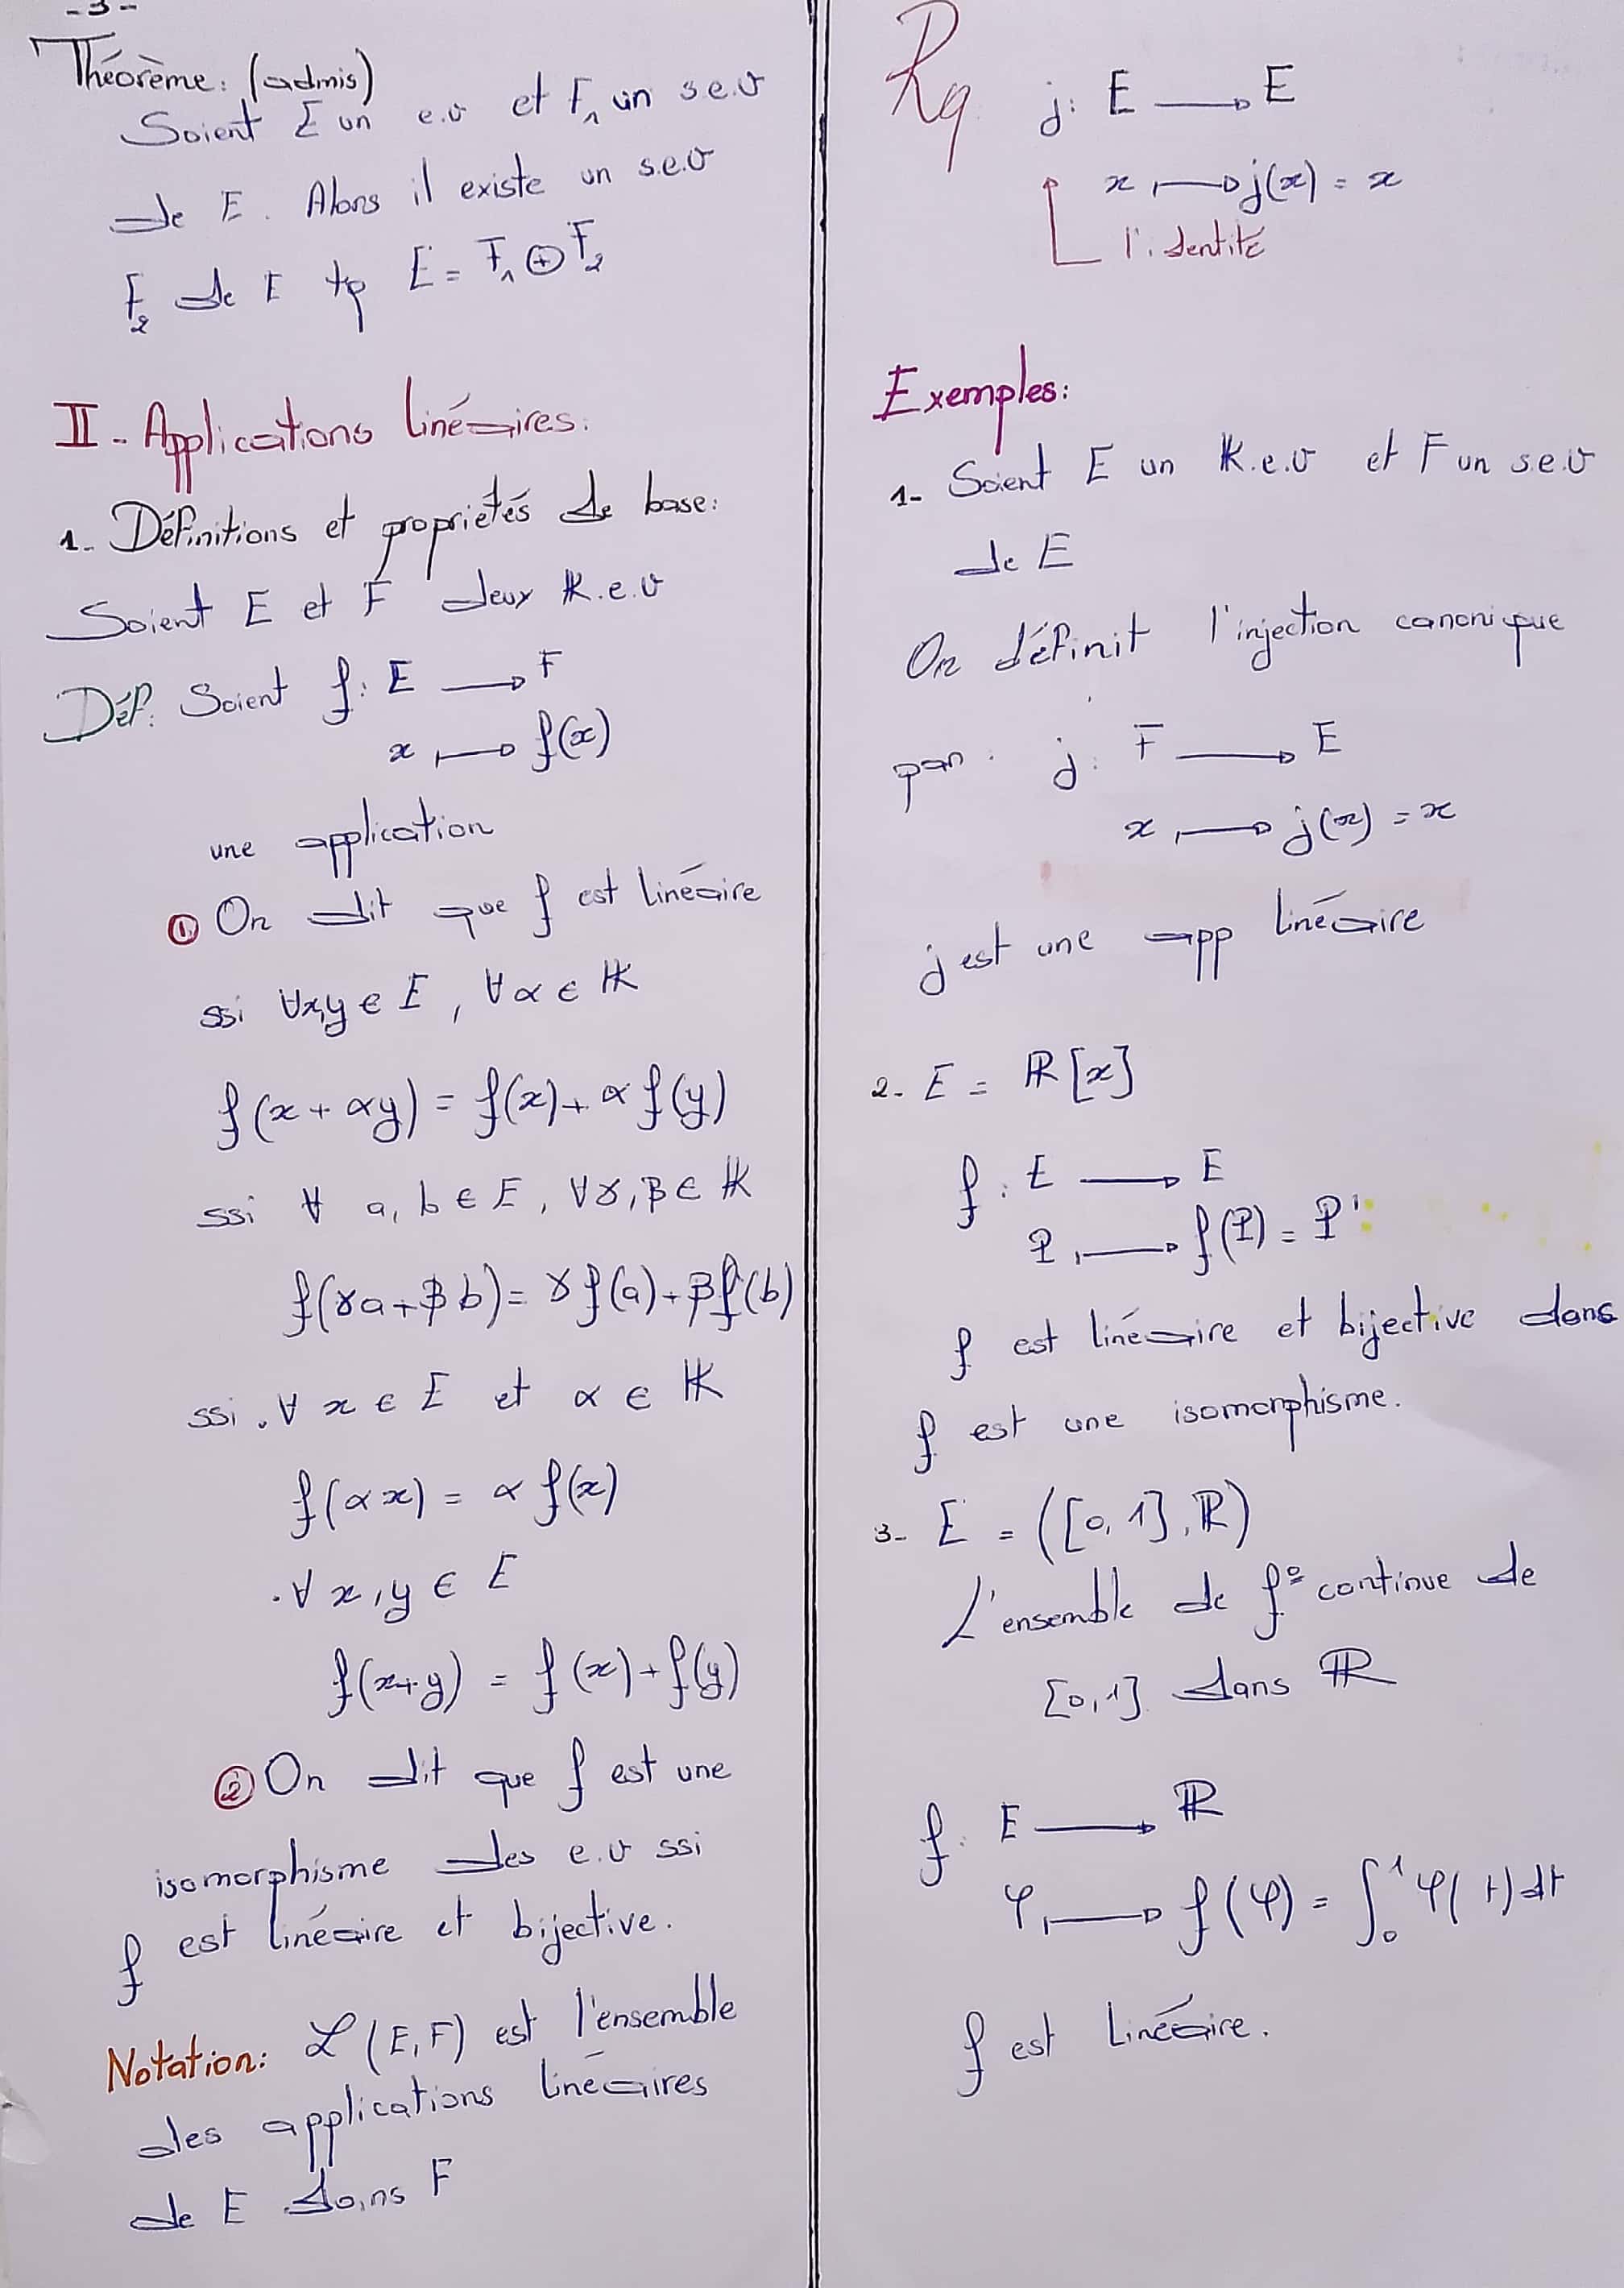 -3-
Théorème: (admis)
Soient E un e.v et F₁ un s.e.v
de E. Alors il existe un s.e.v
F₂ de E tq E = F₁ ⊕ F₂
II - Applications linéaires:
1- Définitions et propriétés de base:
Soient E et F deux K.e.v
Déf: Soient f: E → F
x ↦ f(x)
une application
① On dit que f est linéaire
ssi ∀x,y ∈ E, ∀α ∈ K
f(x + αy) = f(x) + α f(y)
ssi ∀ a, b ∈ E, ∀γ, β ∈ K
f(γa + βb) = γf(a) + βf(b)
ssi . ∀ x ∈ E et α ∈ K
f(αx) = α f(x)
. ∀ x, y ∈ E
f(x+y) = f(x) + f(y)
② On dit que f est une
isomorphisme des e.v ssi
f est linéaire et bijective.
Notation: ℒ(E,F) est l'ensemble
des applications linéaires
de E dans F
Rq j: E → E
x ↦ j(x) = x
l'identité
Exemples:
1- Soient E un K.e.v et F un s.e.v
de E
On définit l'injection canonique
par: j: F → E
x ↦ j(x) = x
j est une app linéaire
2- E = ℝ[x]
f: E → E
P ↦ f(P) = P'
f est linéaire et bijective donc
f est une isomorphisme.
3- E = ([0,1], ℝ)
L'ensemble de f° continue de
[0,1] dans ℝ
f: E → ℝ
φ ↦ f(φ) = ∫₀¹ φ(t)dt
f est linéaire.